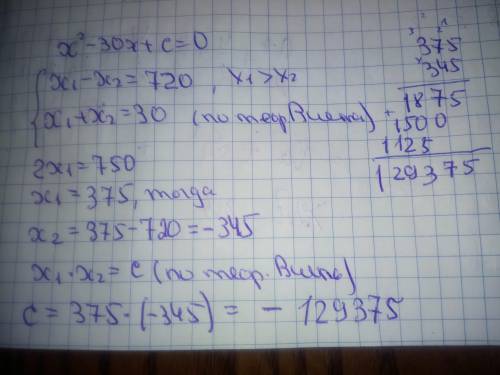 x² - 30x + c = 0
{ x₁ - x₂ = 720, x₁ > x₂
x₁ + x₂ = 30 (по теор. Виета)
2x₁ = 750
x₁ = 375, тогда
x₂ = 375 - 720 = -345
x₁ · x₂ = c (по теор. Виета)
c = 375 · (-345) = - 129375
375
× 345
1875
+ 1500
1125
129375